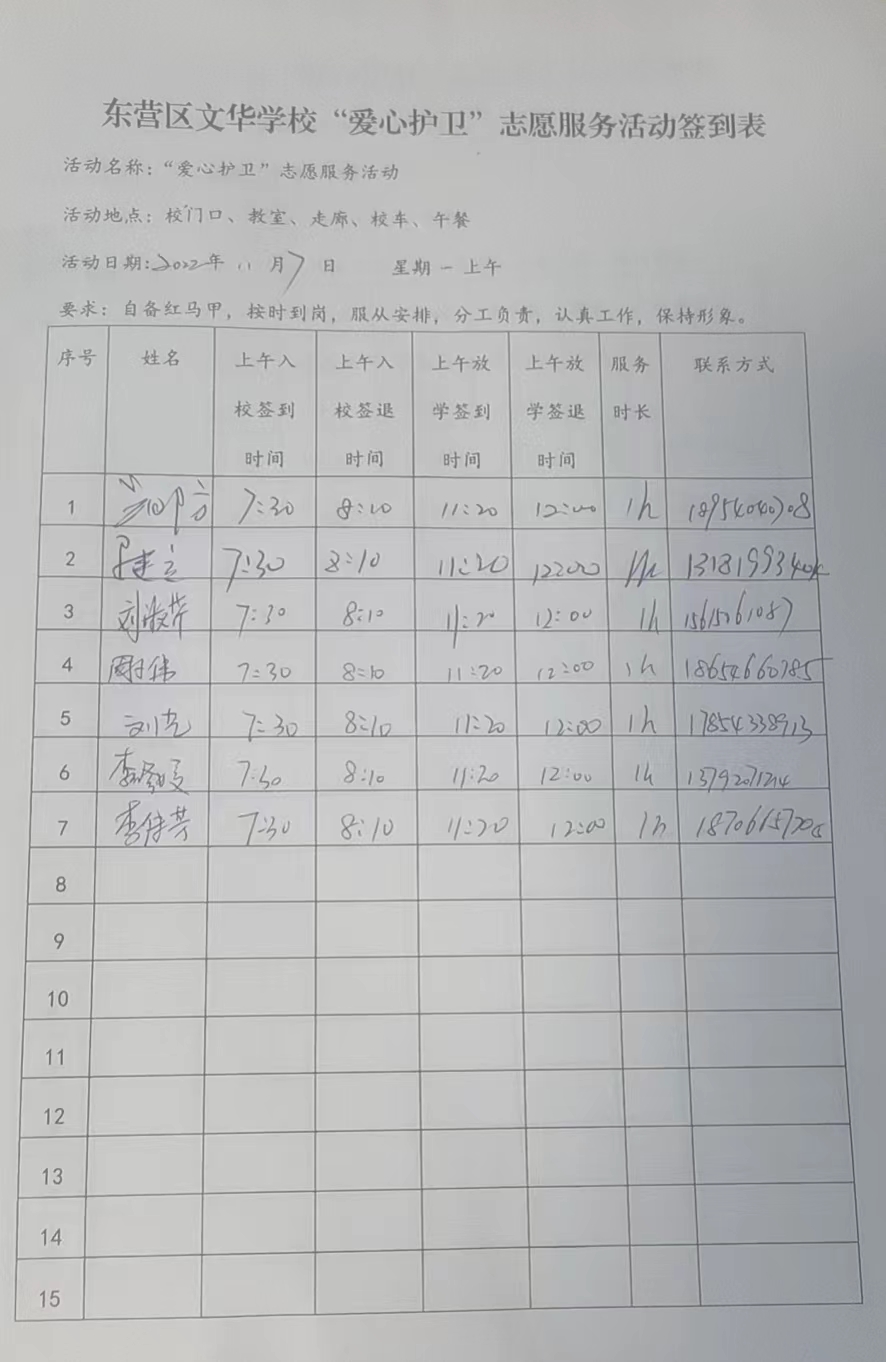 东营区文华学校“爱心护卫”志愿服务活动签到表
活动名称：“爱心护卫”志愿服务活动
活动地点：校门口、教室、走廊、校车、午餐
活动日期：2022年 11 月 7 日 星期一上午
要求：自备红马甲，按时到岗，服从安排，分工负责，认真工作，保持形象。
序号 姓名 上午入校签到时间 上午入校签退时间 上午放学签到时间 上午放学签退时间 服务时长 联系方式
1 7:30 8:10 11:20 12:00 1h
2 7:30 8:10 11:20 1h
3 刘淑芹 7:30 8:10 11:20 12:00 1h
4 7:30 8:10 11:20 12:00 1h 18654660785
5 7:30 8:10 11:20 12:00 1h 17854338913
6 7:30 8:10 11:20 12:00 1h 13792071214
7 7:30 8:10 11:20 12:00 1h
8
9
10
11
12
13
14
15